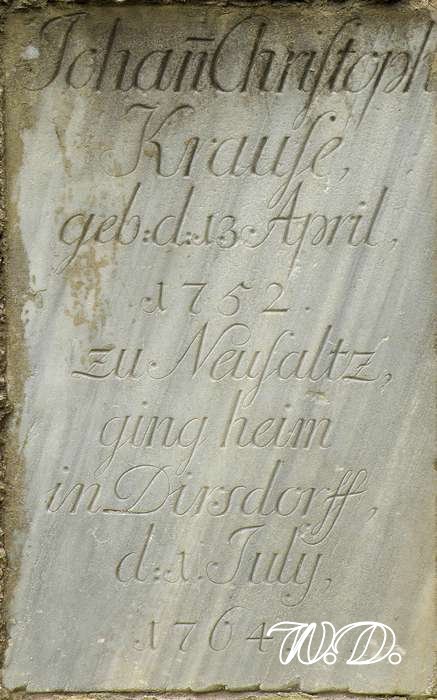 Johañ Chriſtoph
Krauſe,
geb: d: 13. April,
1752.
zu Neuſaltz,
ging heim
in Dirsdorff,
d: 1. July,
1764.
W. D.